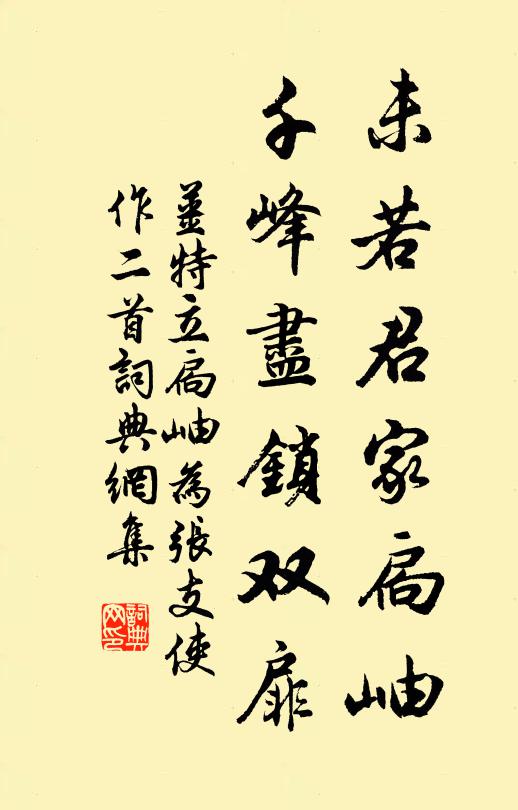 未若君家扃岫
千峰盡鎖双扉
薑特立扃岫為張支使
作二首詞典網集
詞典
网印